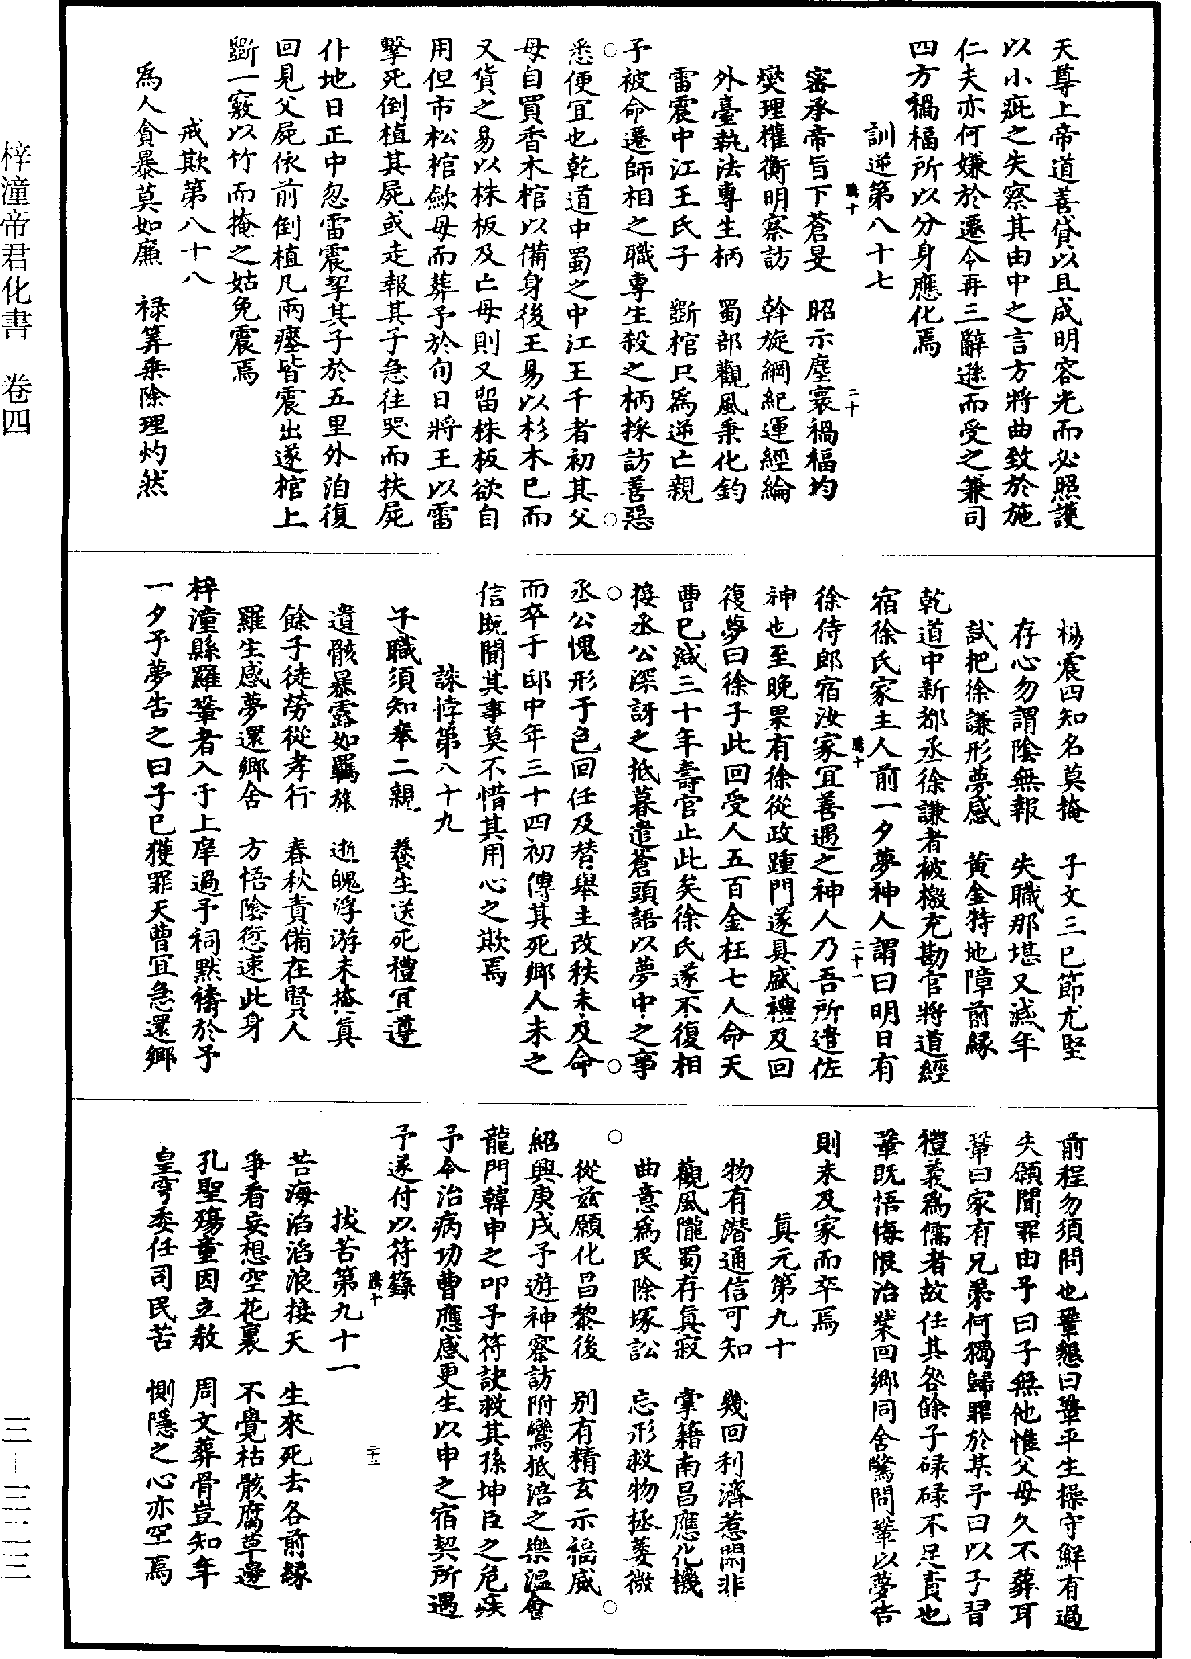 天尊上帝道善貸以且成明容光而必照護
以小疵之失察其由中之言方將曲致於施
仁夫亦何嫌於遷今再三辭遜而受之兼司
四方禍福所以分身應化焉
訓逆第八十七
審承帝旨下蒼旻　昭示塵寰禍福均
燮理權衡明察訪　斡旋綱紀運經綸
外臺執法專生柄　蜀部觀風秉化鈞
雷震中江王氏子　斲棺只為逆亡親
予被命遷師相之職專生殺之柄採訪善惡
悉便宜也乾道中蜀之中江王千者初其父
母自買香木棺以備身後王易以杉木已而
又貨之易以株板及亡母則又留株板欲自
用但市松棺斂母而葬予於旬日將王以雷
擊死倒植其屍或走報其子急往哭而扶屍
仆地日正中忽雷震挈其子於五里外洎復
回見父屍依前倒植凡兩瘞皆震出遂棺上
斲一竅以竹而掩之姑免震焉
戒欺第八十八
為人貪暴莫如廉　祿筭乗除理灼然
楊震四知名莫掩　子文三已節尤堅
存心勿謂陰無報　失職那堪又減年
試把徐謙形夢感　黄金特地障前緣
乾道中新都丞徐謙者被檄充勘官將道經
宿徐氏家主人前一夕夢神人謂曰明日有
徐侍郎宿汝家宜善遇之神人乃吾所遣佐
神也至晚果有徐從政踵門遂具盛禮及回
復夢曰徐子此回受人五百金枉七人命天
曹已減三十年壽官止此矣徐氏遂不復相
接丞公深訝之抵暮遣蒼頭語以夢中之事
丞公愧形于色回任及替舉主改秩未及命
而卒于邸中年三十四初傳其死鄉人未之
信既聞其事莫不惜其用心之欺焉
誅悖第八十九
子職須知奉二親　養生送死禮宜遵
遺骸暴露如羈旅　逝魄浮游未掩真
餘子徒勞從孝行　春秋責備在賢人
羅生感夢還鄉舍　方悟陰愆速此身
梓潼縣羅鞏者入于上庠過予祠默禱於予
一夕予夢告之曰子已獲罪天曹宜急還鄉
前程勿須問也鞏懇曰鞏平生操守鮮有過
失願聞罪由予曰子無他惟父母久不葬耳
鞏曰家有兄弟何獨歸罪於某予曰以子習
禮義為儒者故任其咎餘子碌碌不足責也
鞏既悟悔恨治裝回鄉同舍驚問鞏以夢告
則未及家而卒焉
真元第九十
物有潛通信可知　幾回利濟惹閑非
觀風隴蜀存真寂　掌籍南昌應化機
曲意為民除塚訟　忘形救物拯萎微
從茲願化昌黎後　別有精玄示福威
紹興庚戌予遊神察訪附鸞抵涪之樂溫會
龍門韓申之叩予符訣救其孫坤臣之危疾
予令治病功曹應感更生以申之宿契所遇
予遂付以符籙
拔苦第九十一
苦海滔滔浪接天　生來死去各前緣
爭看妄想空花裏　不覺枯骸腐草邊
孔聖殤童因立教　周文葬骨豈知年
皇穹委任司民苦　惻隱之心亦罕焉
梓潼帝君化書　卷四
三—三二三
騰十
二十
騰十
二十一
騰十
二十二